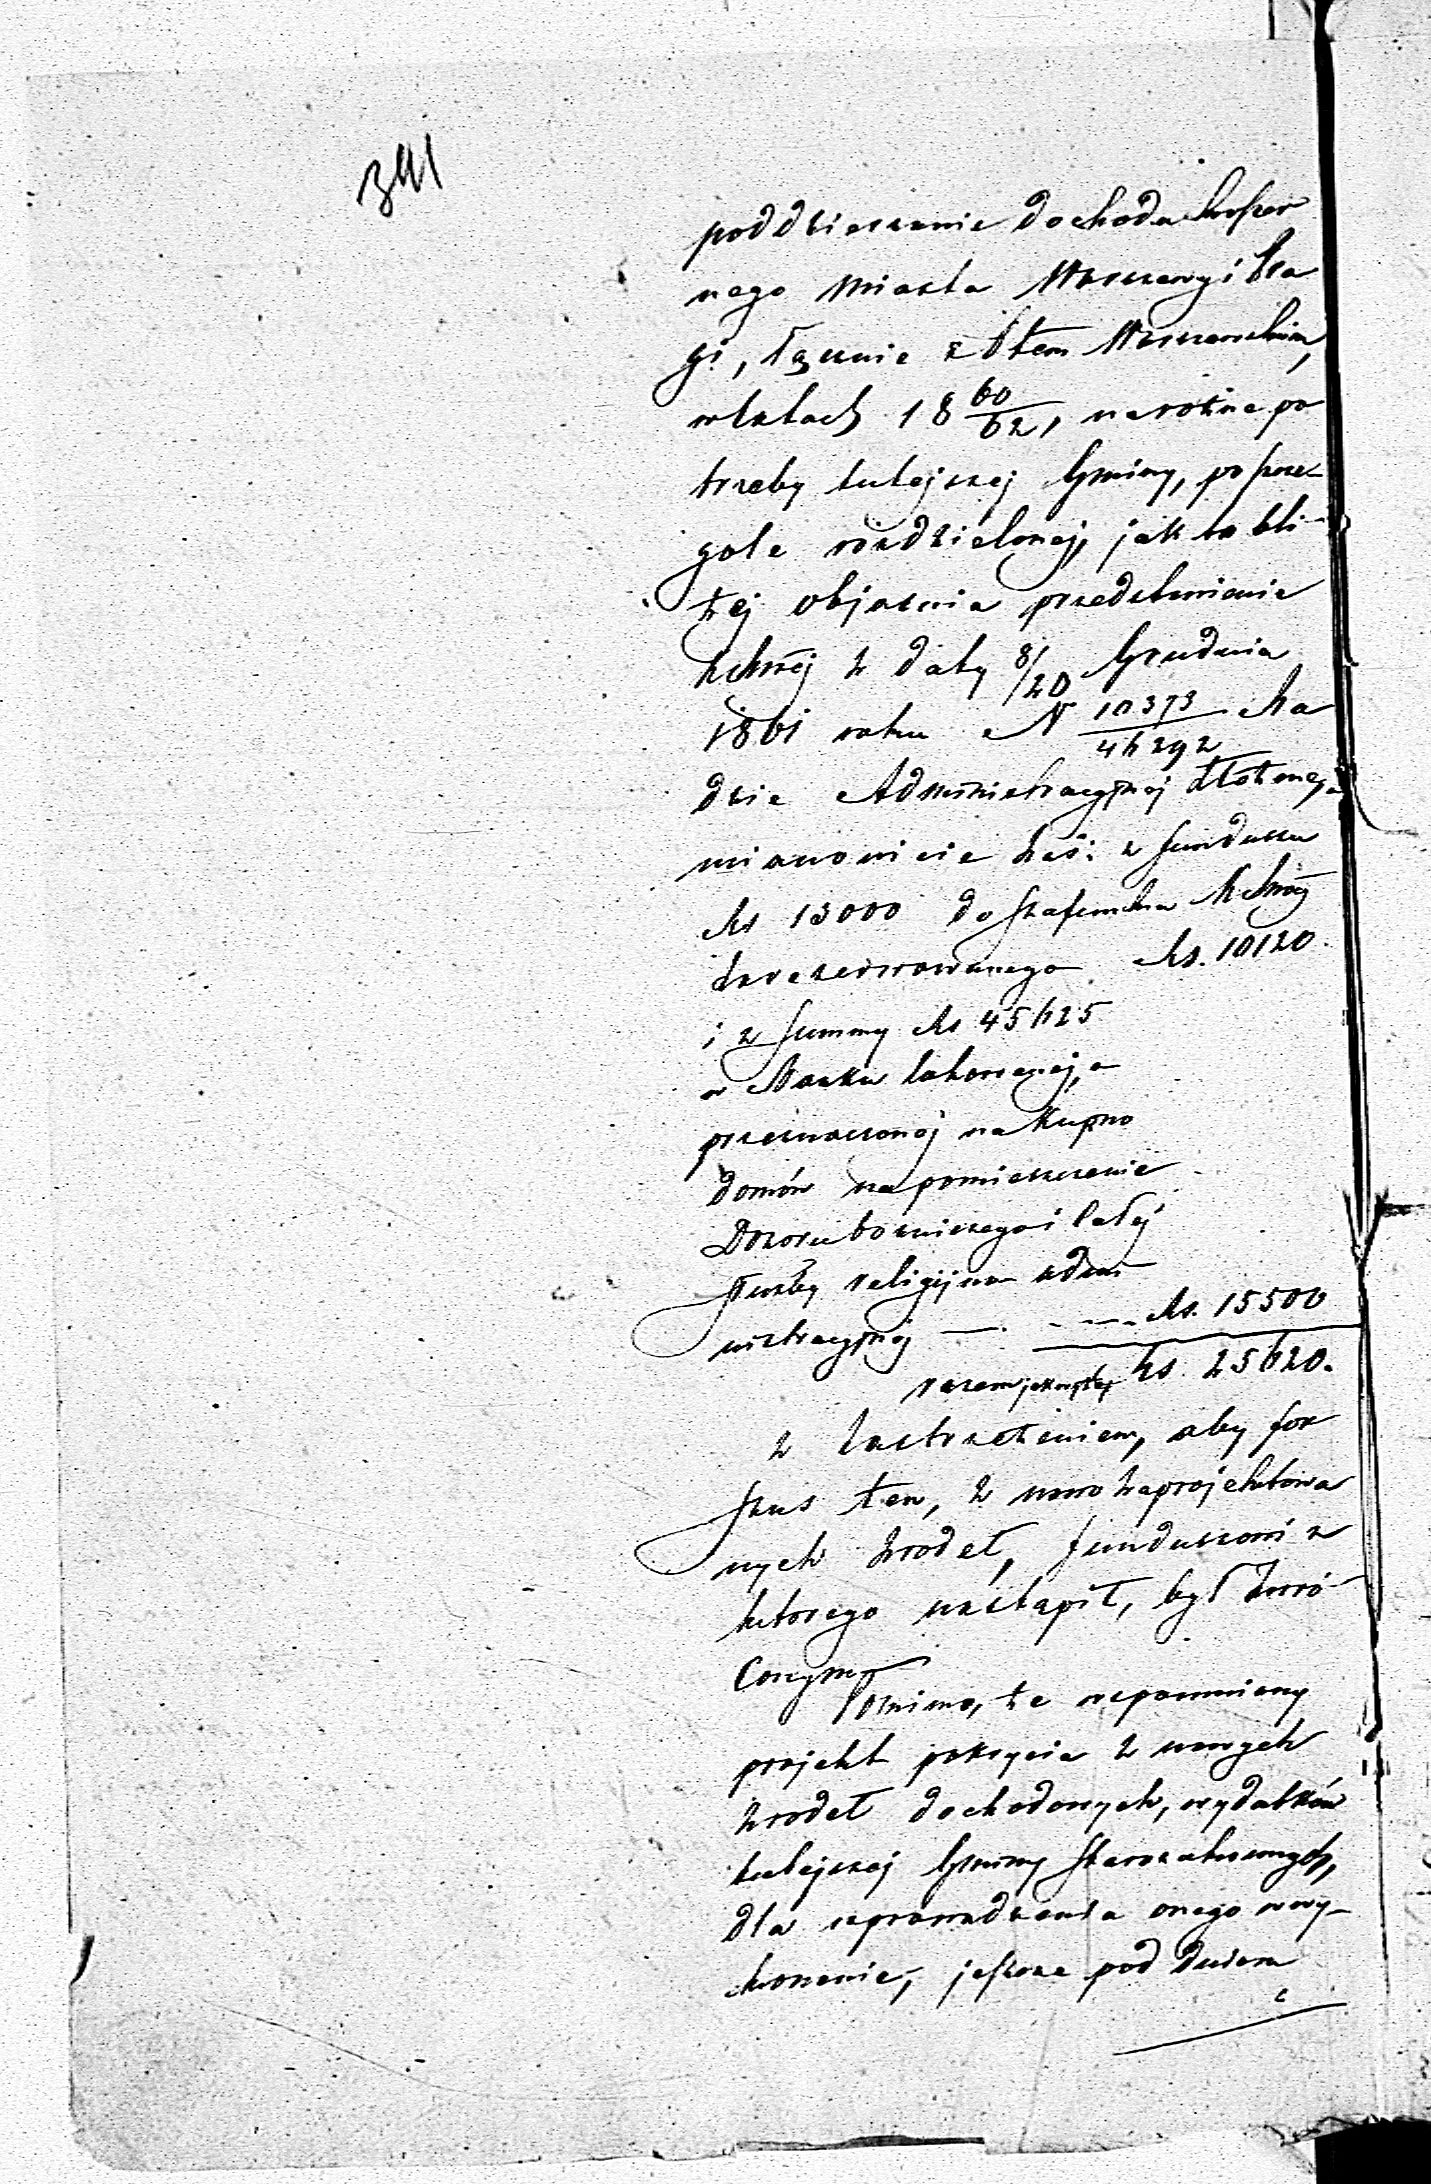 341
poddzierżawie dochodu koszer
nego miasta Warszawy i Pra
gi, łącznie z Ptem Warszawskim,
w latach 18 60/62, na różne po
trzeby tutejszej Gminy, po szcze-
gole rozdzielonej, jak to bli-
żej objaśnia przedstawienie
z daty 8/20 Grudnia
1861 roku N 10373/46292 Ra
dzie Administracyjnej złożone, a
mianowicie też: z funduszu
Rs 13000 do szafunku
zarezerwowanego Rs. 10120.
i z summy Rs 45625
w Banku lokowanej, a
przeznaczonej na kupno
domów na pomieszczenie
Dozoru bożniczego i całej
służby religijno admi
nistracyjnej — . - . — . Rs. 15500
razem jak wyżej Rs. 25620.
z zastrzeżeniem, aby for
szus ten, z nowo zaprojektowa
nych źrodeł, funduszowi z
ktorego nastąpił, był zwró-
conym
Pomimo, że wspomniany
projekt pokrycia z nowych
źrodeł dochodowych, wydatków
tutejszej Gminy Starozakonnych,
dla wprowadzenia onego w wy-
konanie, jeszcze pod dniem